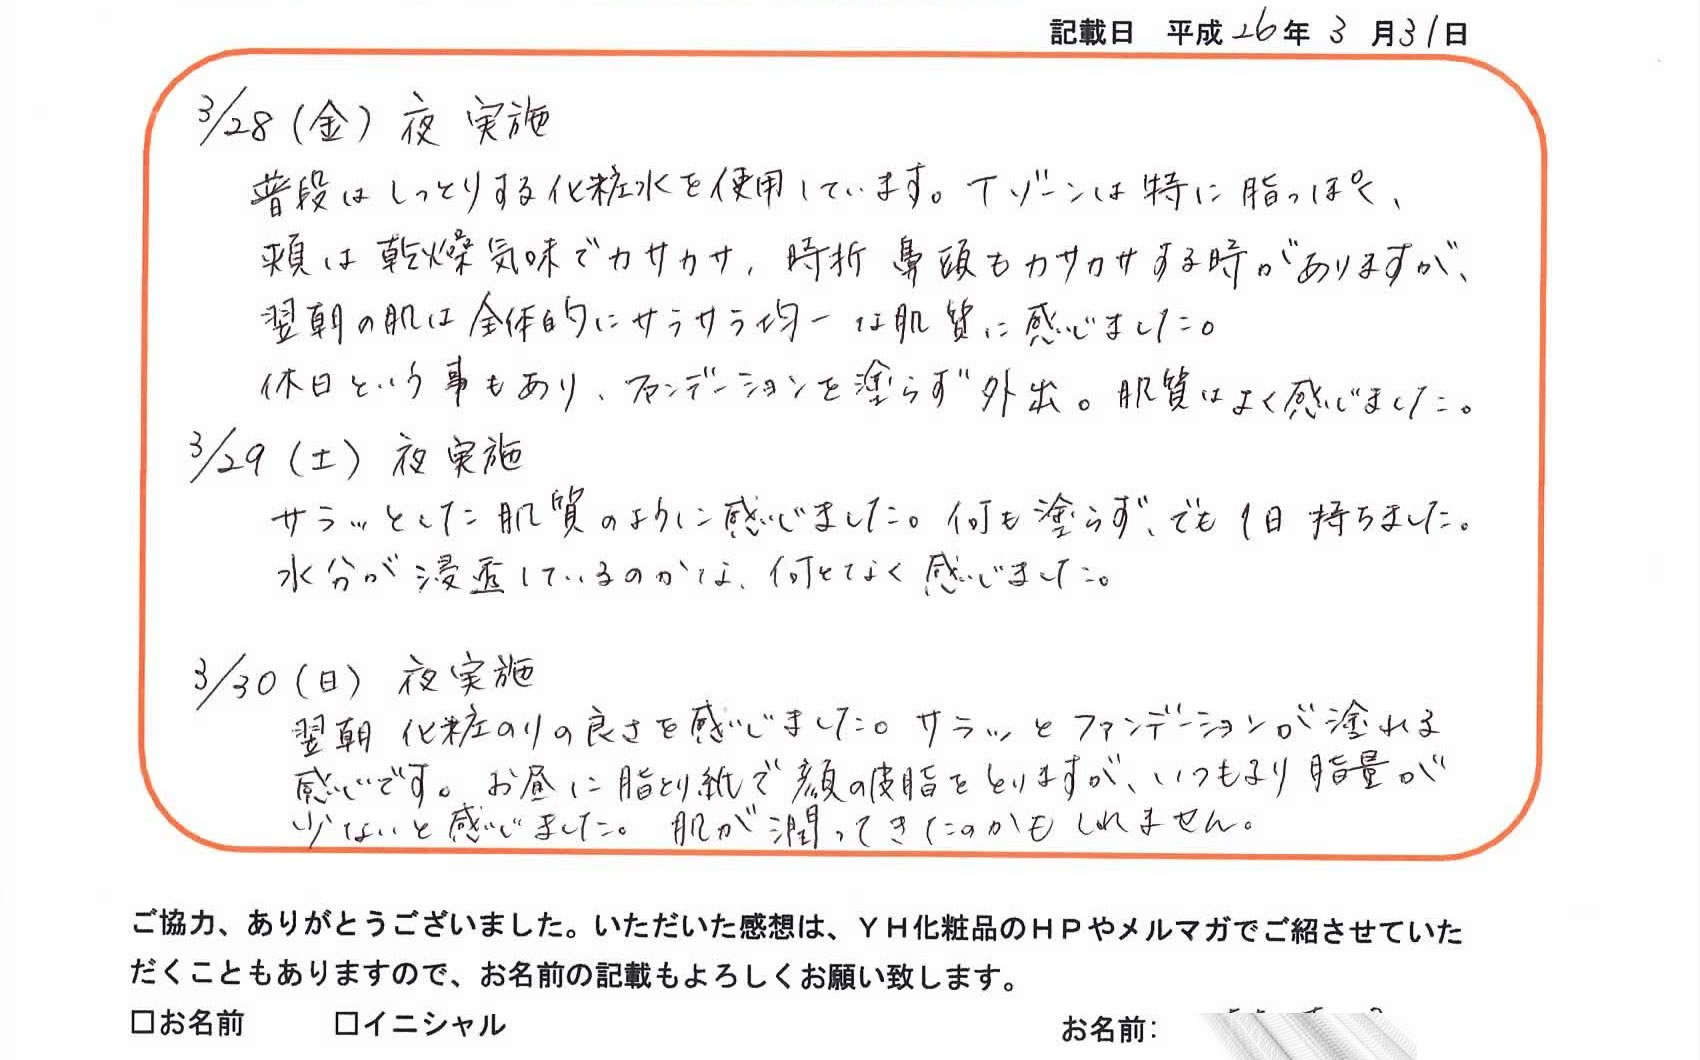 記載日 平成26年3月31日
3/28(金) 夜 実施
普段はしっとりする化粧水を使用しています。Tゾーンは特に脂っぽく、
頬は乾燥気味でカサカサ、時折鼻頭もカサカサする時がありますが、
翌朝の肌は全体的にサラサラ均一な肌質に感じました。
休日という事もあり、ファンデーションを塗らず外出。肌質はよく感じました。
3/29(土) 夜実施
サラッとした肌質のように感じました。何も塗らず、でも1日持ちました。
水分が浸透しているのかな、何となく感じました。
3/30(日) 夜実施
翌朝 化粧のりの良さを感じました。サラッとファンデーションが塗れる
感じです。お昼に脂とり紙で顔の皮脂をとりますが、いつもより脂量が
少ないと感じました。肌が潤ってきたのかもしれません。
ご協力、ありがとうございました。いただいた感想は、YH化粧品のHPやメルマガでご紹させていた
だくこともありますので、お名前の記載もよろしくお願い致します。
□お名前 □イニシャル お名前: